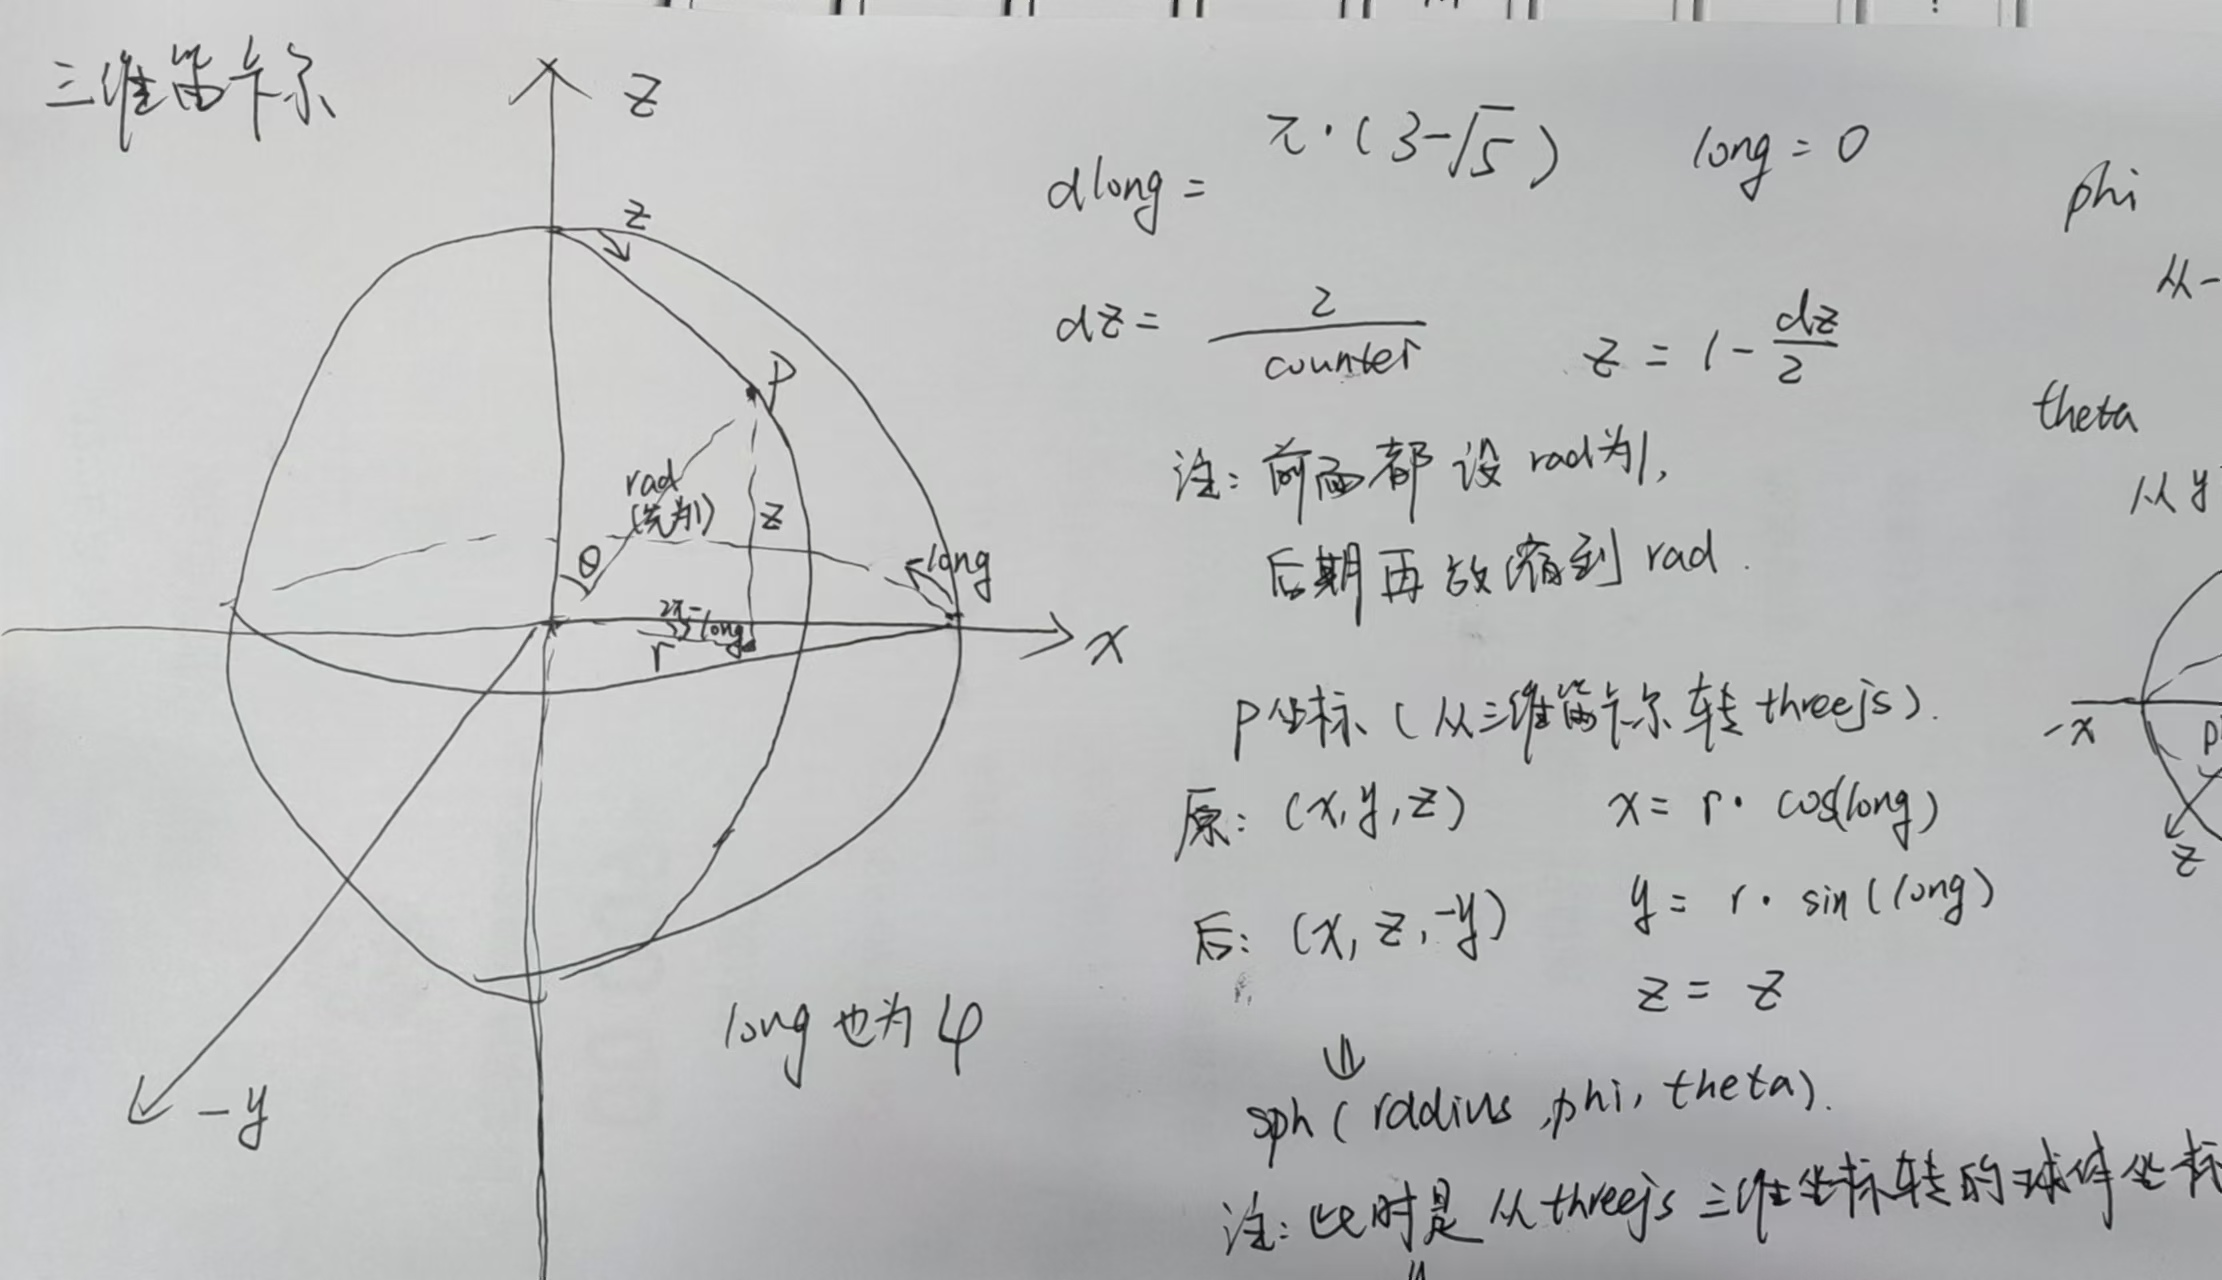 三维笛卡尔
z
z
P
rad
(先为1)
z
θ
long
2π-long
r
x
-y
long也为φ
dlong = π·(3-√5) long = 0
dz = 2/counter z = 1 - dz/2
注: 前面都设rad为1,
后期再放缩到rad.
P坐标 (从三维笛卡尔转threejs).
原: (x,y,z) x = r· cos(long)
y = r· sin(long)
后: (x, z, -y)
z = z
⇓
sph ( radius, phi, theta).
注: 此时是从threejs三维坐标转的球体坐标
phi
从-
theta
从y
-x
z